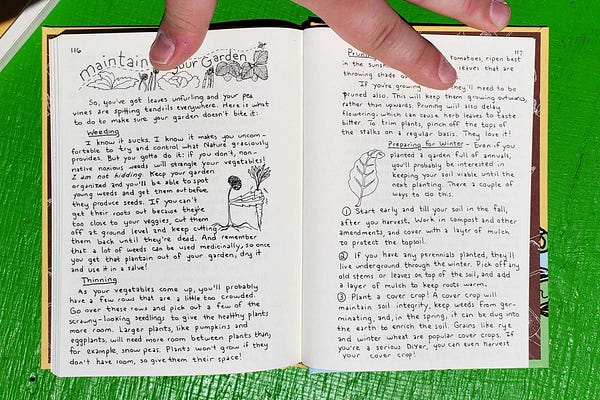 116
maintain your Garden
So, you've got leaves unfurling and your pea
vines are spitting tendrils everywhere. Here is what
to do to make sure your garden doesn't bite it:
Weeding
I know it sucks. I know it makes you uncom-
fortable to try and control what Nature graciously
provides. But you gotta do it: if you don't, non-
native noxious weeds will strangle your vegetables!
I am not kidding. Keep your garden
organized and you'll be able to spot
young weeds and get them out before
they produce seeds. If you can't
get their roots out because they're
too close to your veggies, cut them
off at ground level and keep cutting
them back until they're dead. And remember
that a lot of weeds can be used medicinally, so once
you get that plantain out of your garden, dry it
and use it in a salve!
Thinning
As your vegetables come up, you'll probably
have a few rows that are a little too crowded.
Go over these rows and pick out a few of the
scrawny-looking seedlings to give the healthy plants
more room. Larger plants, like pumpkins and
eggplants, will need more room between plants than,
for example, snow peas. Plants won't grow if they
don't have room, so give them their space!
117
tomatoes, ripen best
in the sunsh leaves that are
throwing shade o
If you're growing they'll need to be
pruned also. This will keep them growing outwards,
rather than upwards. Pruning will also delay
flowering, which can cause herb leaves to taste
bitter. To trim plants, pinch off the tops of
the stalks on a regular basis. They love it!
Preparing for Winter - Even if you
planted a garden full of annuals,
you'll probably be interested in
keeping your soil viable until the
next planting. There are a couple of
ways to do this.
① Start early and till your soil in the fall,
after you harvest. Work in compost and other
amendments, and cover with a layer of mulch
to protect the topsoil.
② If you have any perennials planted, they'll
live underground through the winter. Pick off any
old stems or leaves on top of the soil, and add
a layer of mulch to keep roots warm.
③ Plant a cover crop! A cover crop will
maintain soil integrity, keep weeds from ger-
minating, and, in the spring, it can be dug into
the earth to enrich the soil. Grains like rye
and winter wheat are popular cover crops. If
you're a serious DIYer, you can even harvest
your cover crop!